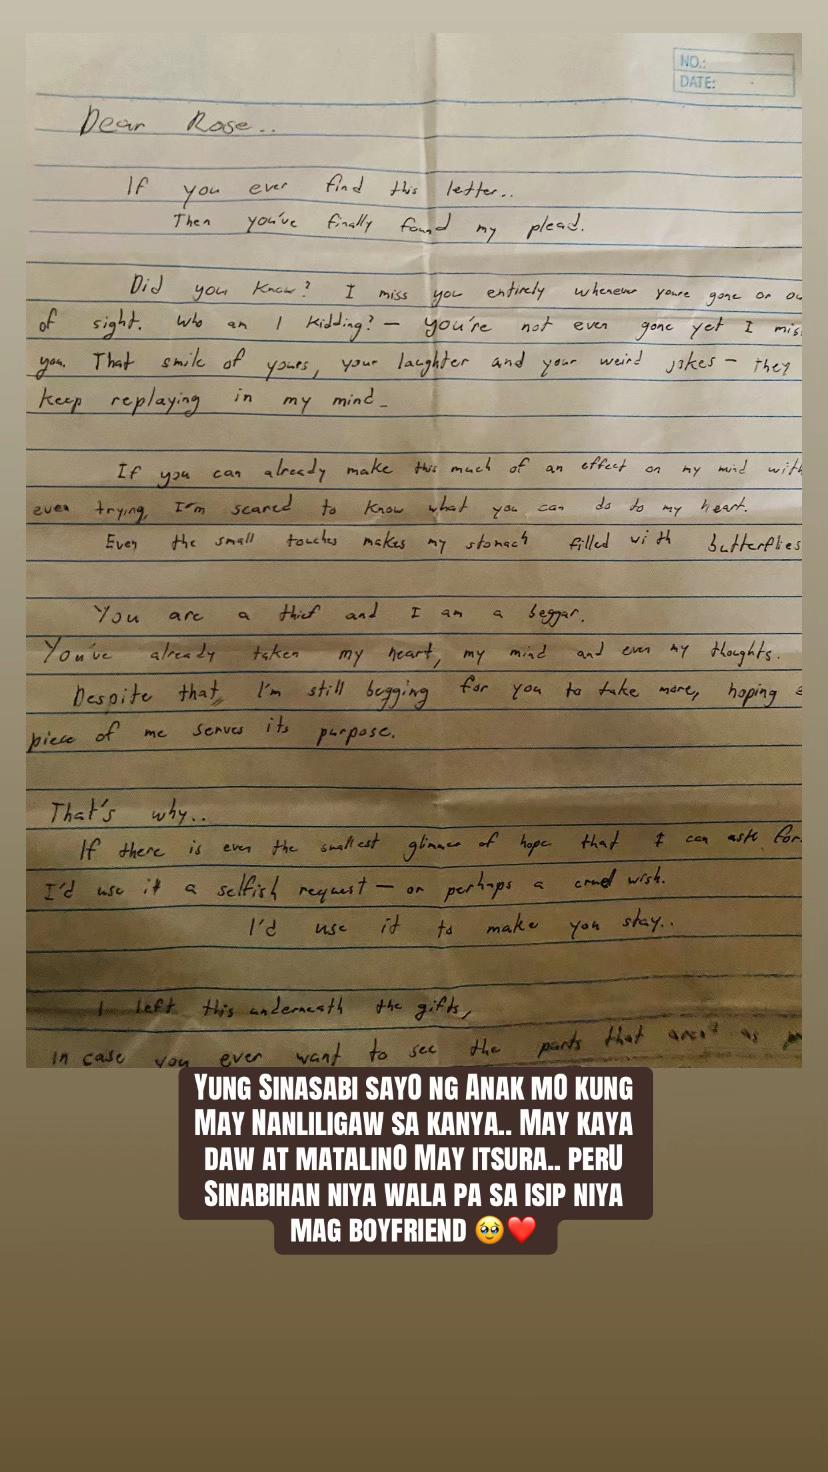 NO.:
DATE:
Dear Rose..
If you ever find this letter..
Then you've finally found my plead.
Did you know? I miss you entirely whenever youre gone or ou
of sight. Who am I kidding? — You're not even gone yet I mis
you. That smile of yours, your laughter and your weird jokes — they
keep replaying in my mind_
If you can already make this much of an effect on my mind with
even trying, I'm scared to know what you can do to my heart.
Even the small touches makes my stomach filled with butterflies
You are a thief and I am a beggar.
You've already taken my heart, my mind and even my thoughts.
Despite that, I'm still begging for you to take more, hoping a
piece of me serves its purpose.
That's why..
If there is even the smallest glimmer of hope that I can ask for.
I'd use it a selfish request — or perhaps a cruel wish.
I'd use it to make you stay..
I left this underneath the gifts,
In case you ever want to see the parts that aren't as
YUNG SINASABI SAYO NG ANAK MO KUNG
MAY NANLILIGAW SA KANYA.. MAY KAYA
DAW AT MATALINO MAY ITSURA.. PERU
SINABIHAN NIYA WALA PA SA ISIP NIYA
MAG BOYFRIEND 🥹❤️